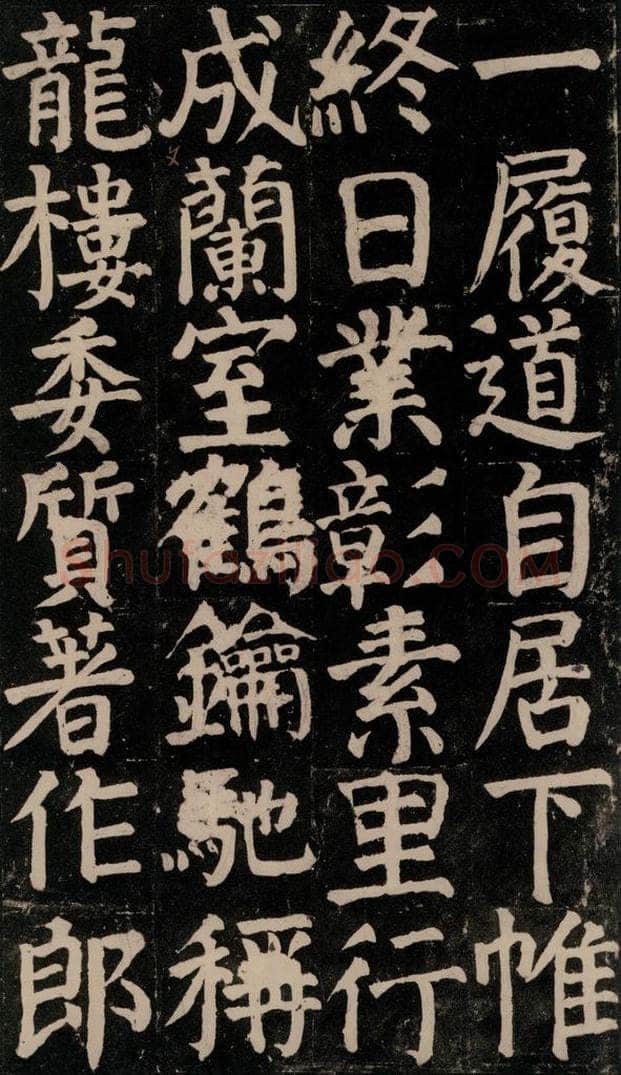 一履道自居下帷
終日業彰素里行
成蘭室鶴鑰馳稱
龍樓委質著作郎
shufaziliao.COM